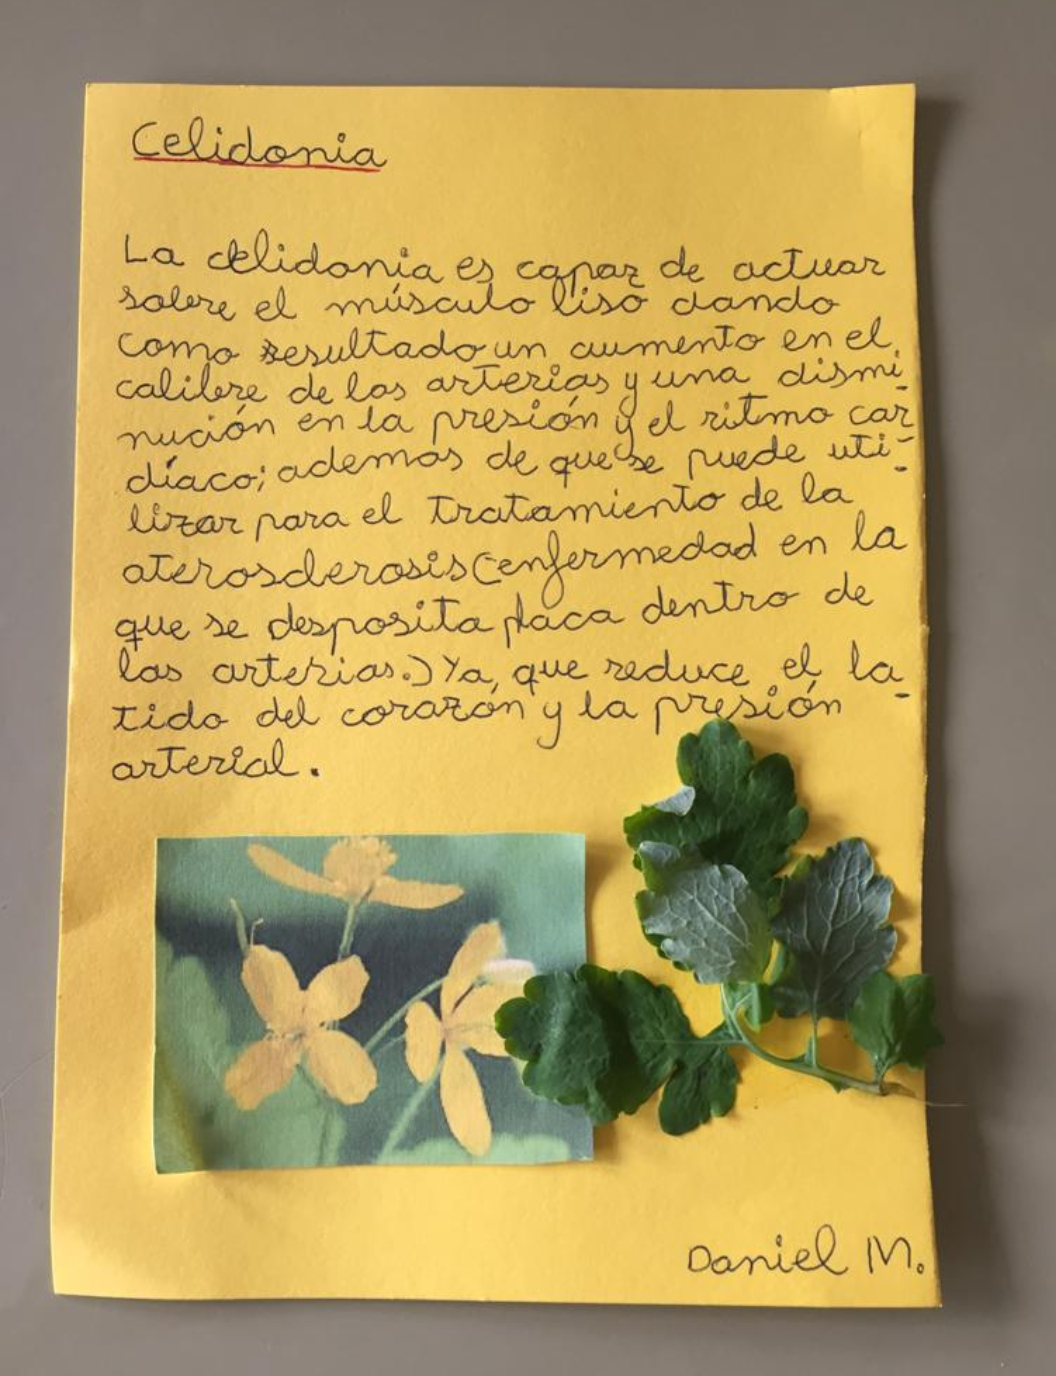 Celidonia
La celidonia es capaz de actuar
sobre el músculo liso dando
como resultado un aumento en el
calibre de las arterias y una dismi-
nución en la presión y el ritmo car-
díaco; ademas de que se puede uti-
lizar para el tratamiento de la
aterosclerosis (enfermedad en la
que se desposita placa dentro de
las arterias.) Ya, que reduce el la-
tido del corazón y la presión
arterial.
Daniel M.